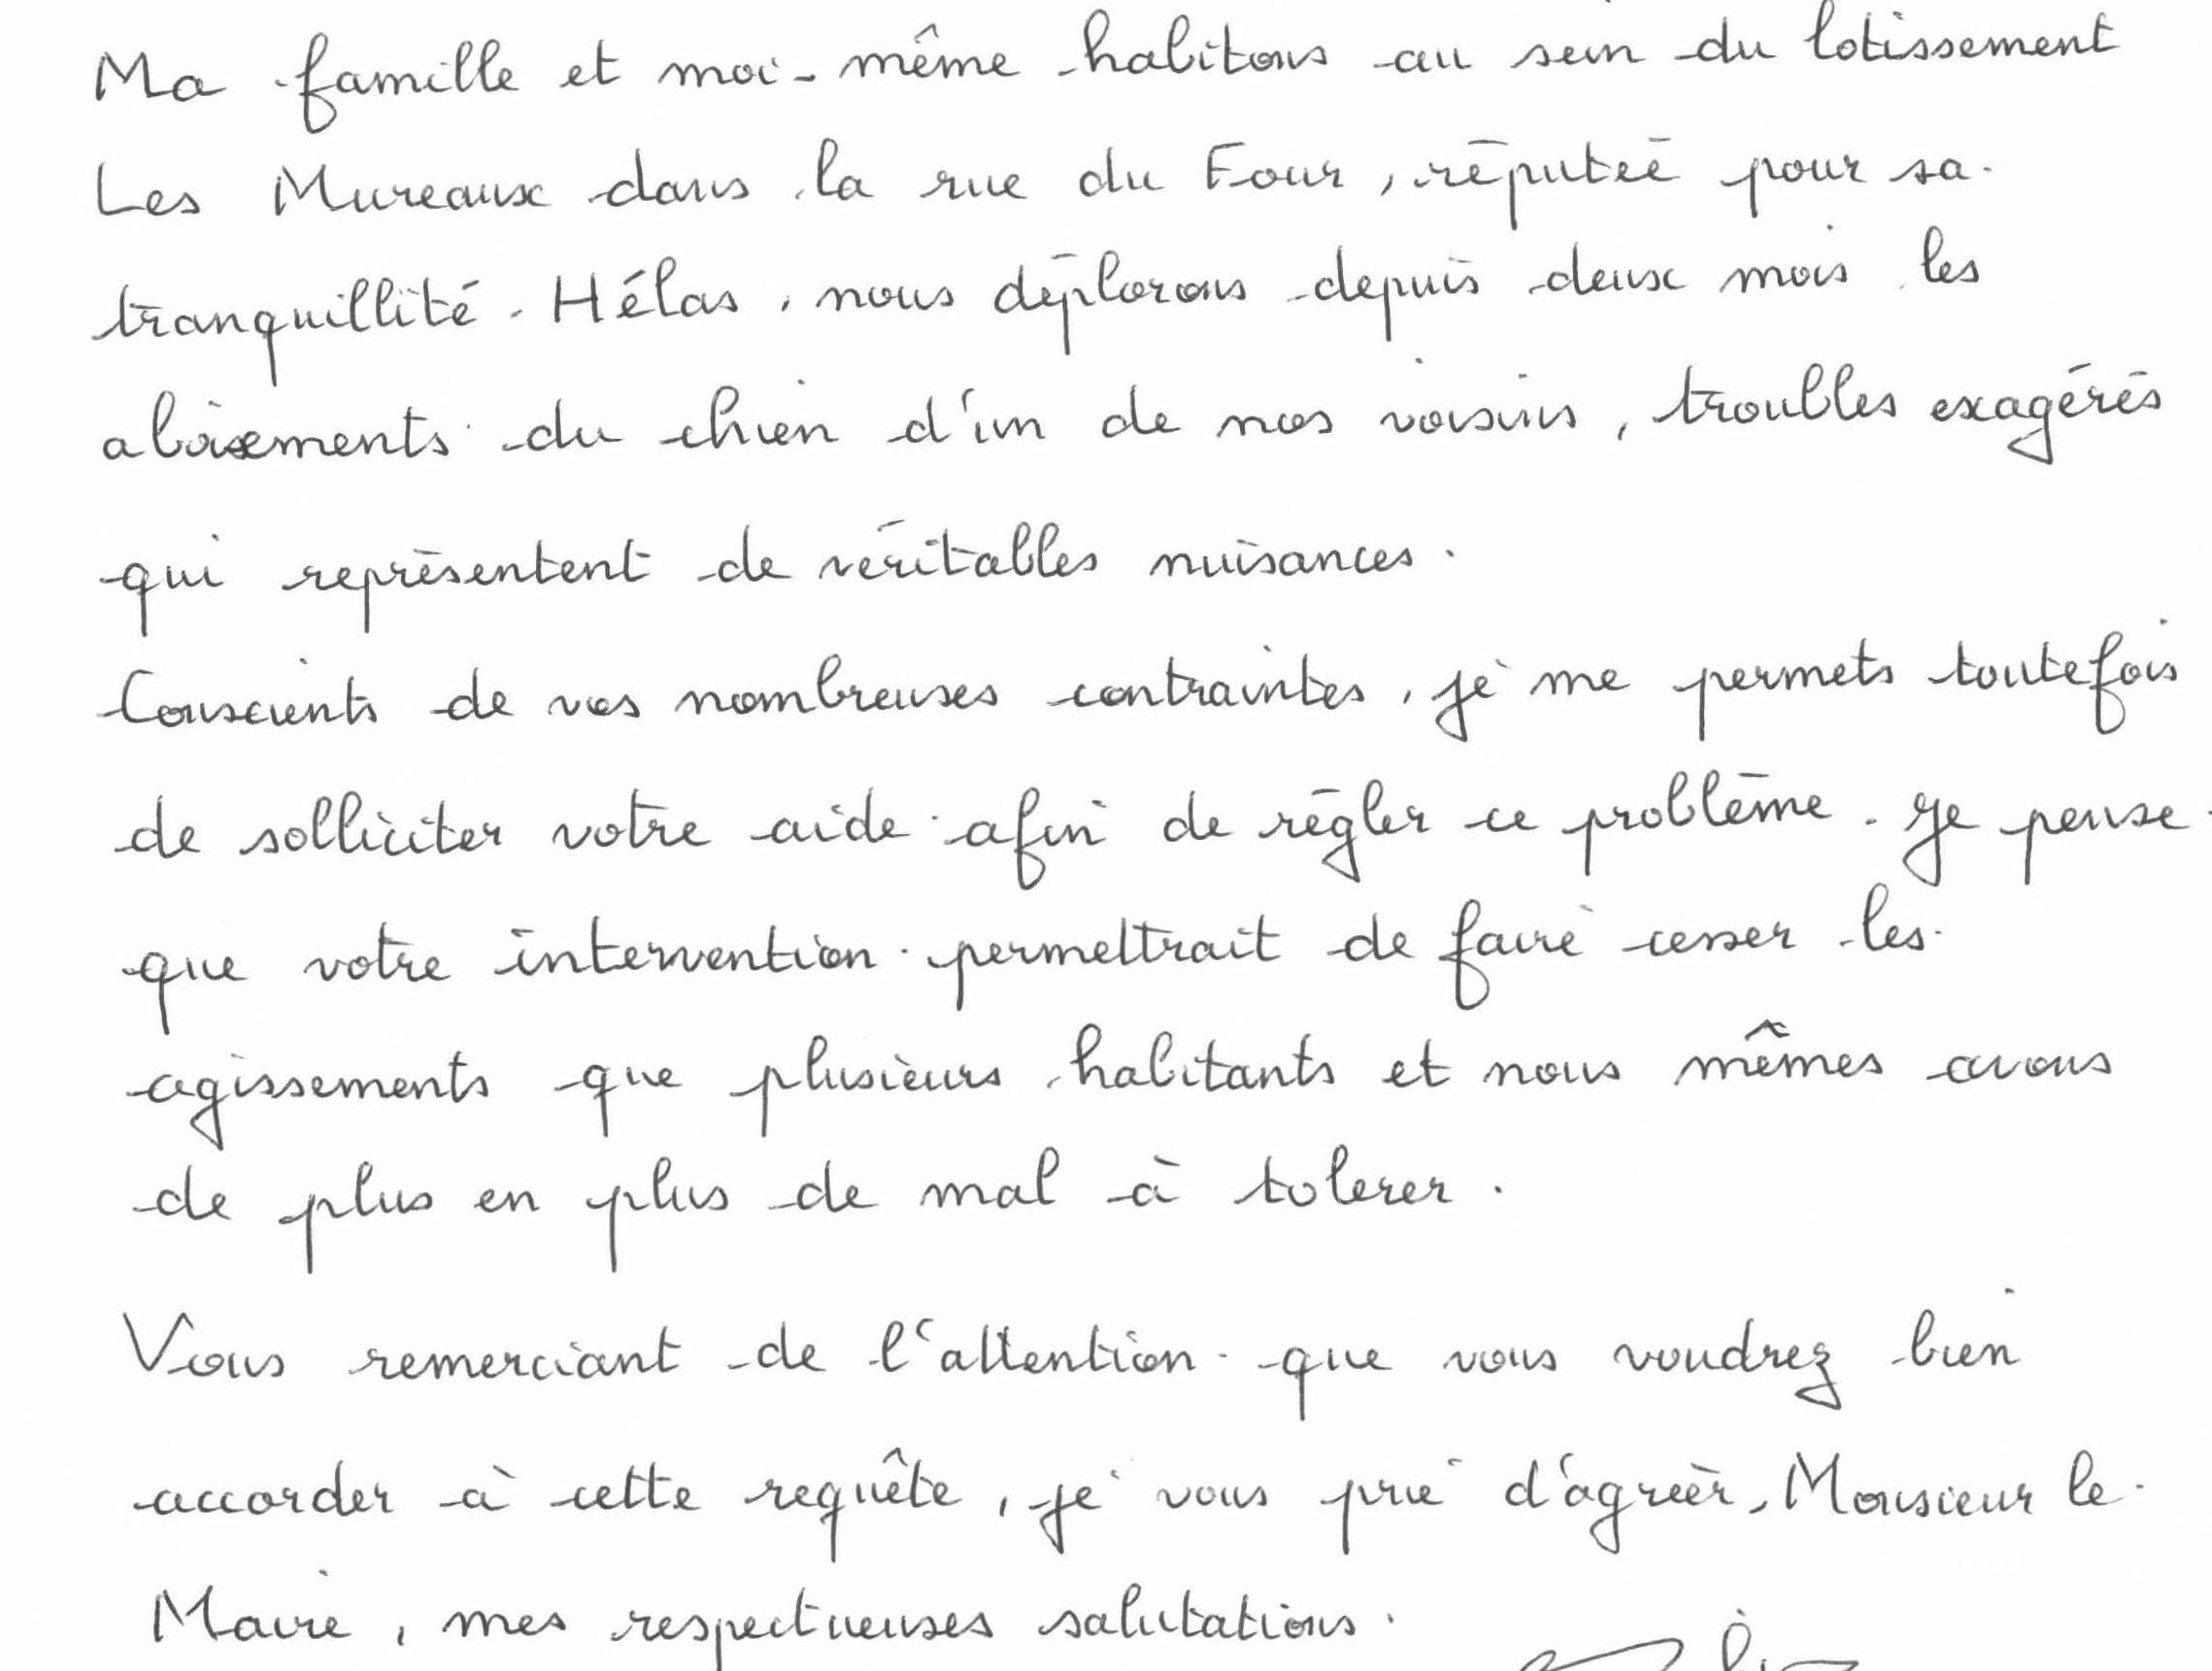 Ma famille et moi-même habitons au sein du lotissement
Les Mureaux dans la rue du Four, réputée pour sa
tranquillité. Hélas, nous déplorons depuis deux mois les
aboiements du chien d'un de nos voisins, troubles exagérés
qui représentent de véritables nuisances.
Conscients de vos nombreuses contraintes, je me permets toutefois
de solliciter votre aide afin de régler ce problème. Je pense
que votre intervention permettrait de faire cesser les
agissements que plusieurs habitants et nous mêmes avons
de plus en plus de mal à tolerer.
Vous remerciant de l'attention que vous voudrez bien
accorder à cette requête, je vous prie d'agréer, Monsieur le
Maire, mes respectueuses salutations.